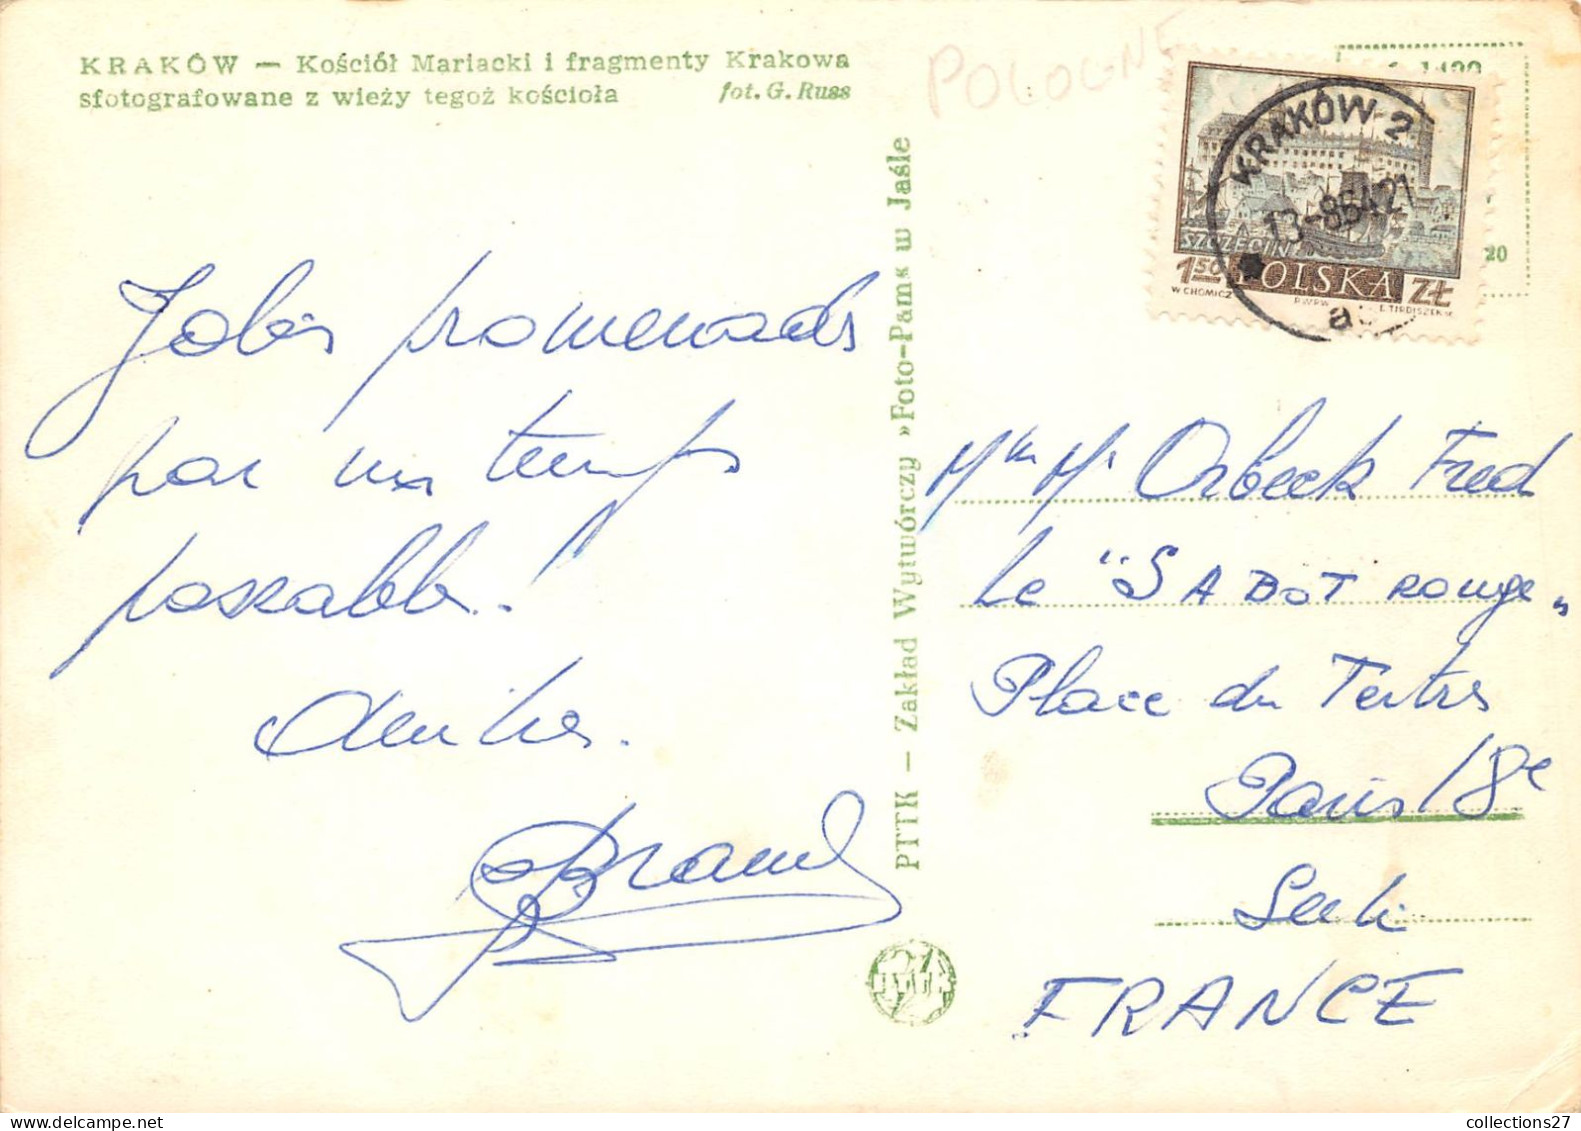 KRAKÓW — Kościół Mariacki i fragmenty Krakowa
sfotografowane z wieży tegoż kościoła fot. G. Russ
POLOGNE
KRAKÓW 2
13-8 64 21
SZCZECIN
1,50 POLSKA ZŁ
PTTK — Zakład Wytwórczy »Foto-Pam« w Jaśle
20
Jolies promenades
par un temps
passable!
Amitiés.
Mme Mr Orbeck Fred
Le "SABOT Rouge"
Place du Tertre
Paris 18e
Seine
FRANCE
collections27